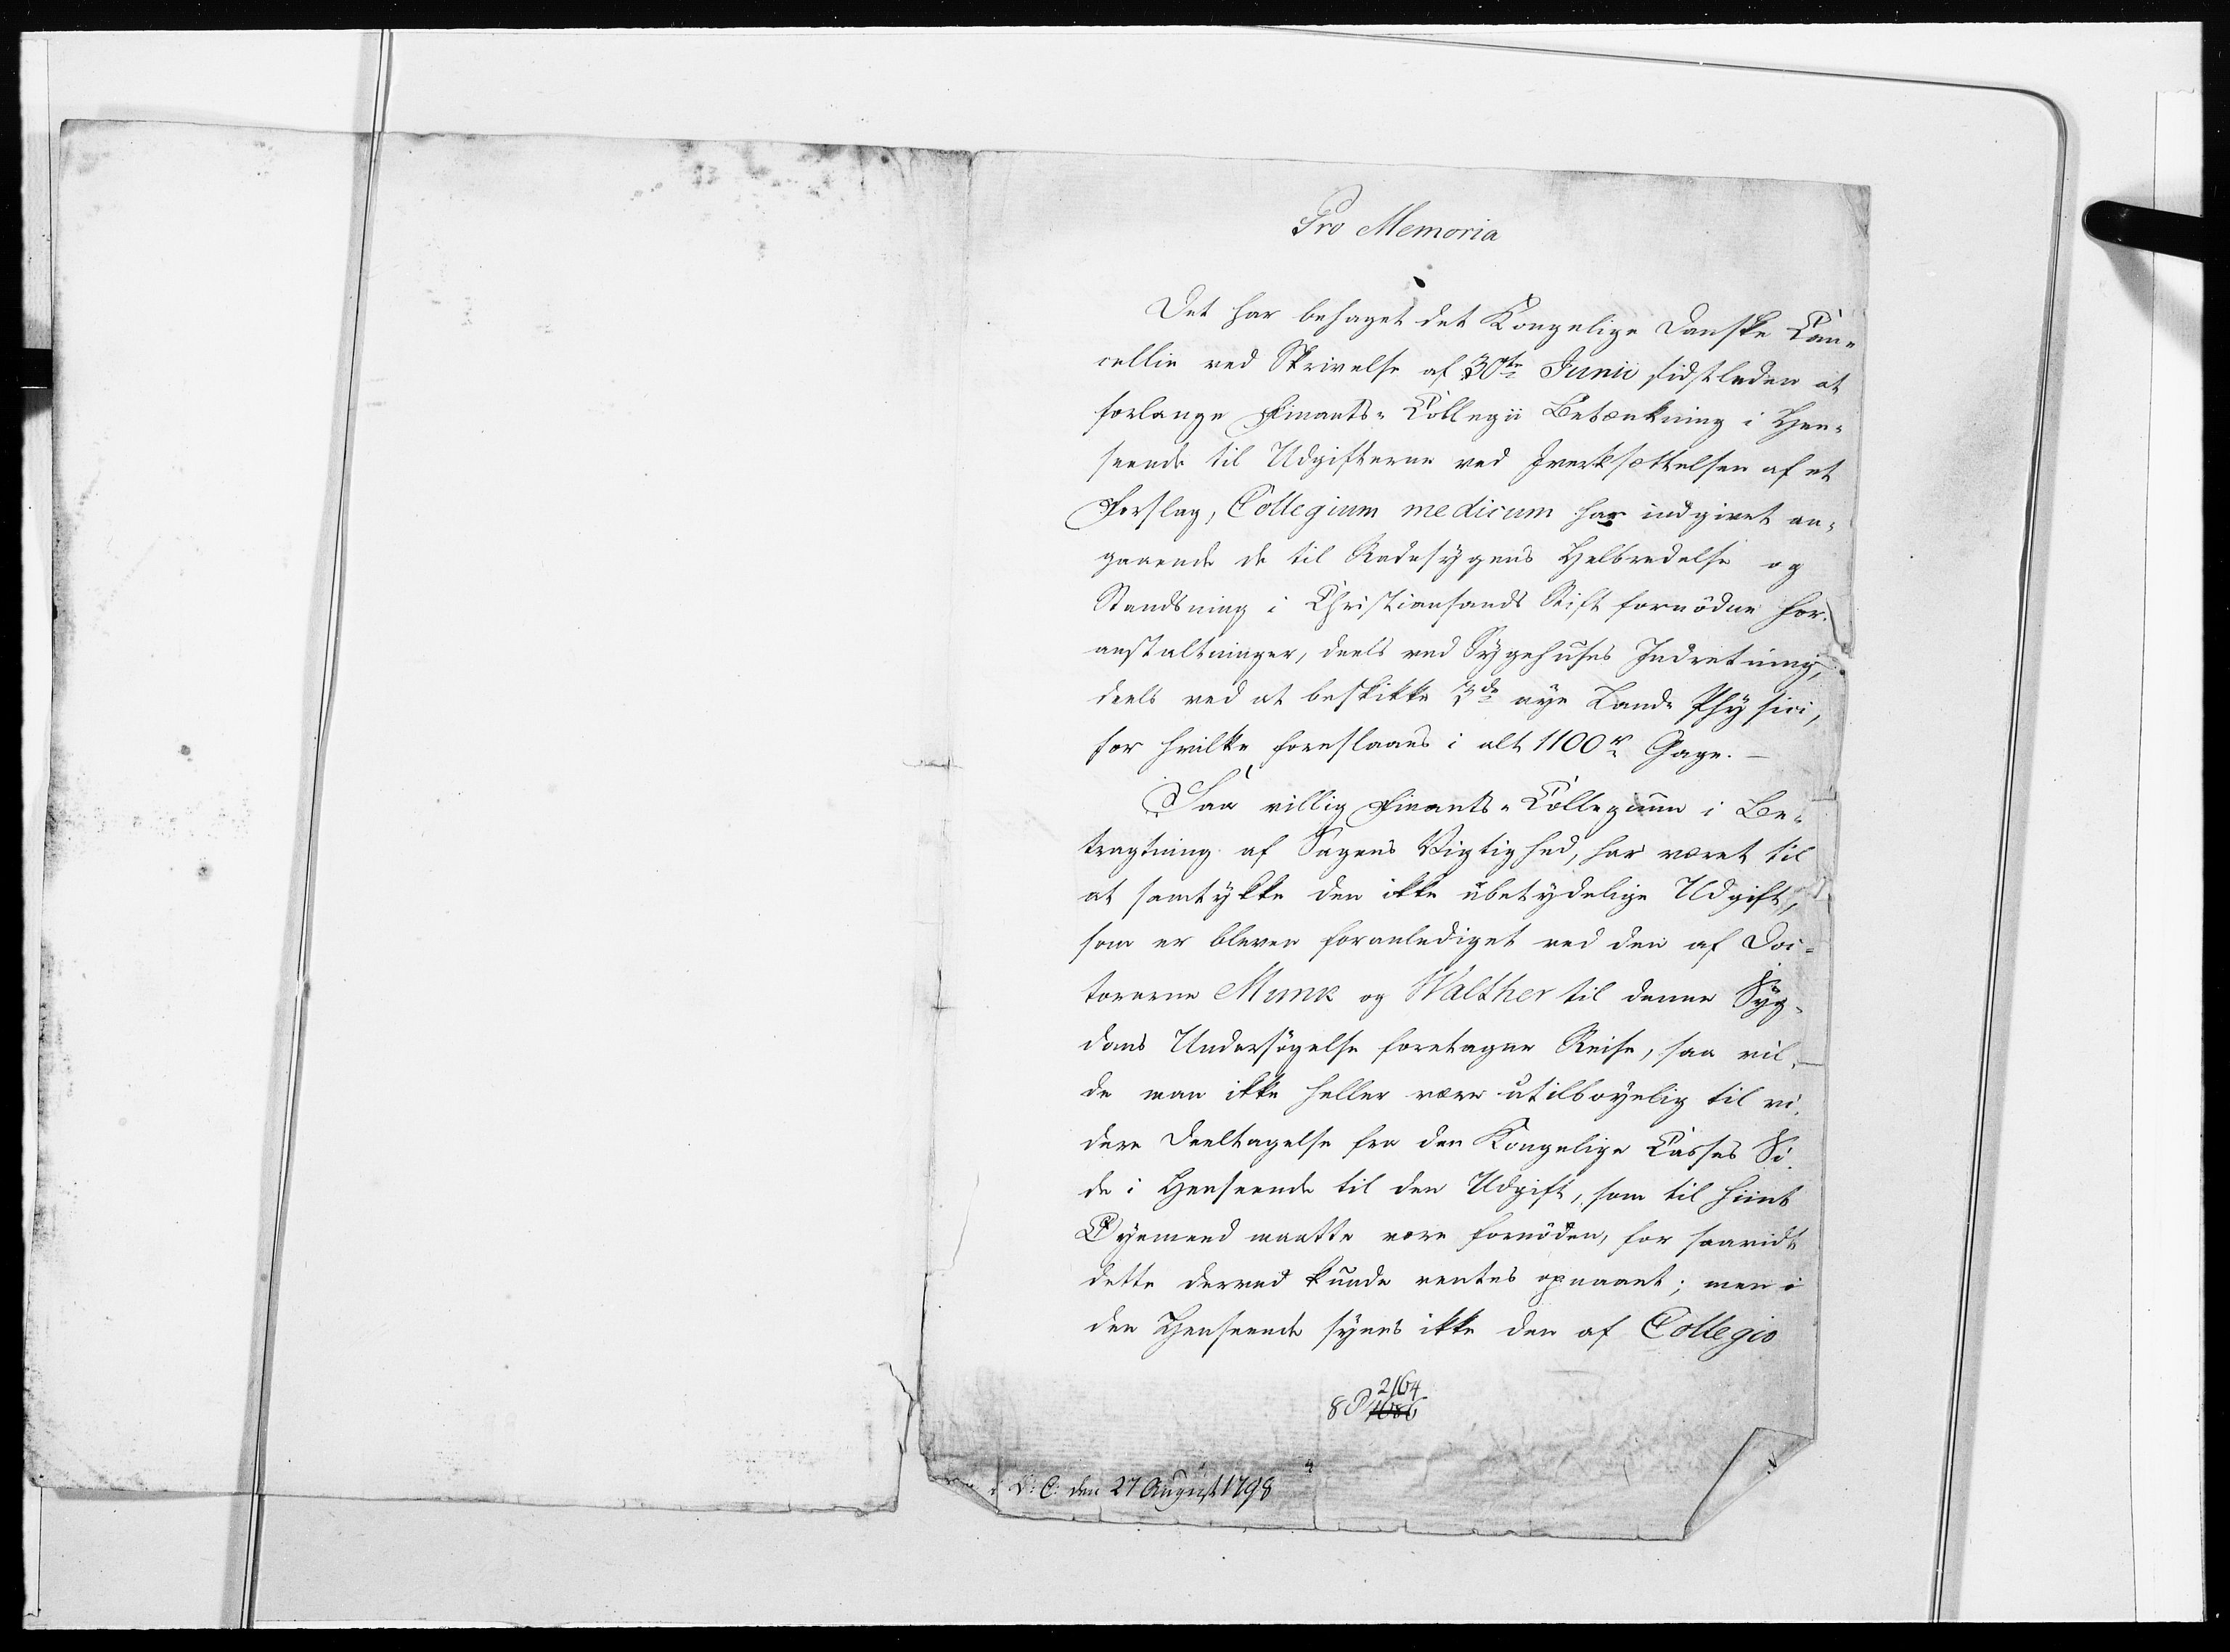 Pro Memoria
Det har behaget det Kongelige Danske Can-
cellie ved Skrivelse af 30te Junii sidstleden at
forlange Finants-Collegii Betænkning i Hen-
seende til Udgifterne ved Iverksættelsen af et
Forslag, Collegium medicum har indgivet an-
gaaende de til Radesygens Helbredelse og
Standsning i Christiansands Stift fornødne For-
anstaltninger, deels ved Sygehuses Indretning,
deels ved at beskikke 3de nye Land-Physici,
for hvilke foreslaaes i alt 1100 r Gage. —
Saa villig Finants-Collegium i Be-
tragtning af Sagens Vigtighed, har været til
at samtykke den ikke ubetydelige Udgift,
som er bleven foranlediget ved den af Doc-
torerne Munk og Walther til denne Syg-
doms Undersøgelse foretagne Reise, saa vil-
de man ikke heller være utilbøyelig til vi-
dere Deeltagelse fra den Kongelige Casses Si-
de i Henseende til den Udgift, som til hiint
Øyemeed maatte være fornøden, for saavidt
dette derved kunde ventes opnaaet; men i
den Henseende synes ikke den af Collegio
2164
8 P 1086
i D: C: den 27 August 1798